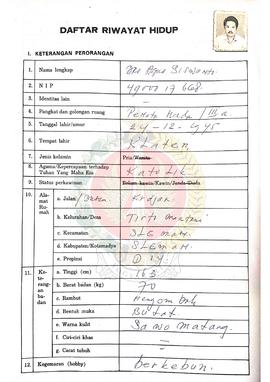 DAFTAR RIWAYAT HIDUP
I. KETERANGAN PERORANGAN
1. Nama lengkap
2. N I P
3. Identitas lain –
4. Pangkat dan golongan ruang Penata Muda / III a
5. Tanggal lahir/umur 24-12-1945
6. Tempat lahir Klaten
7. Jenis kelamin Pria/Wanita
8. Agama/Kepercayaan terhadap Tuhan Yang Maha Esa Katolik
9. Status perkawinan Belum kawin/Kawin/Janda-Duda
10. Alamat Rumah a. Jalan
b. Kelurahan/Desa Tirto Martani
c. Kecamatan
d. Kabupaten/Kotamadya SLEMAN
e. Propinsi D I Y.
11. Keterangan badan a. Tinggi (cm) 165
b. Berat badan (kg) 70
c. Rambut
d. Bentuk muka Bulat
e. Warna kulit Sawo matang
f. Ciri-ciri khas –
g. Cacat tubuh –
12. Kegemaran (hobby) berkebun.